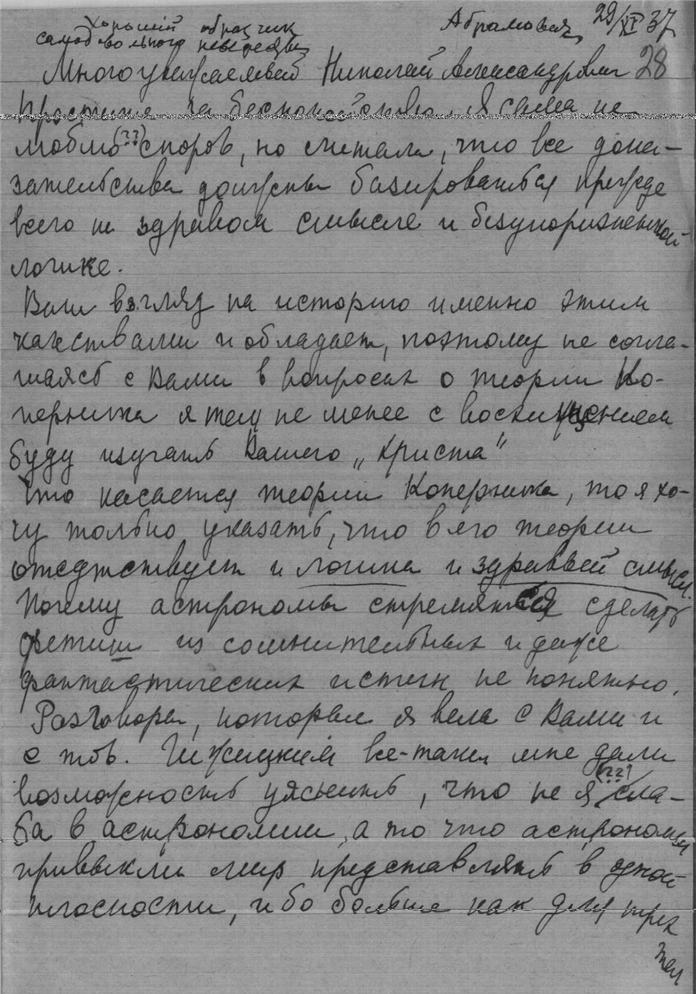 Хороший образчик
самодовольного неведения
Абрамович 29/XI 37
28
Многоуважаемый Николай Александрович
Простите за беспокойство. Я сама не
люблю (??) споров, но считала, что все дока-
зательства должны базироваться прежде
всего на здравом смысле и безукоризненной
логике.
Ваш взгляд на историю именно этим
качествами и обладает, поэтому не согла-
шаясь с Вами в вопросах о теории Ко-
перника я тем не менее с восхищением
буду изучать Вашего „Христа"
Что касается теории Коперника, то я хо-
чу только указать, что в его теории
отсутствует и логика и здравый смысл.
Почему астрономы стремятся сделать
фетиш из сомнительных и даже
фантастических истин не понятно.
Разговоры, которые я вела с Вами и
с тов. все-таки мне дали
возможность уяснить, что не я (??) сла-
ба в астрономии, а то что астрономы
привыкли мир представлять в одной
плоскости, ибо больше как для трех
тел